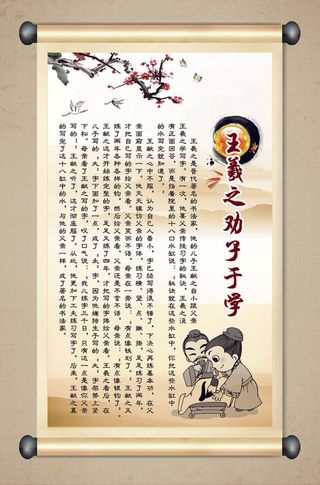 王羲之劝子于学
王羲之是晋代著名的书法家，他的儿子王献之自小跟亲
王羲之学字，要父亲传授习字的秘诀，王羲之没
有正面回答，而是指着院里的十八口水缸说：：秘诀就在这些水缸中，你把这些水缸中
的水写完就知道了。
王献之心中不服，认为自己人虽小，字已经写得很不错了，下决心再练基本功，在父
亲面前显示一下。他天天模仿父亲的字体，练习横、竖、点、撇、捺，足足练习了两年，
才把自己写的字给父亲看。父亲笑而不语，母亲在一旁说：：有点像铁划了。王献之又
练了两年各种各样的钩，然后给父亲看，父亲还是不言不语，母亲说：：有点像银钩了。
王献之这才开始练完整的字，足足又练了四年，才把写的字捧给父亲看。王羲之看后，在
儿子写的：大：字下面加了一点，成了：太：字，因为他嫌儿子写的：大：字架势上紧
下松。母亲看了王献之写的字，叹了口气说：：我儿练字三千日，只有这一点是像你父亲
写的！：王献之听了，这才彻底服了。从此，他更加下工夫练习写字了。后来，王献之真
的写完了这十八缸中的水，与他的父亲一样，成了著名的书法家。